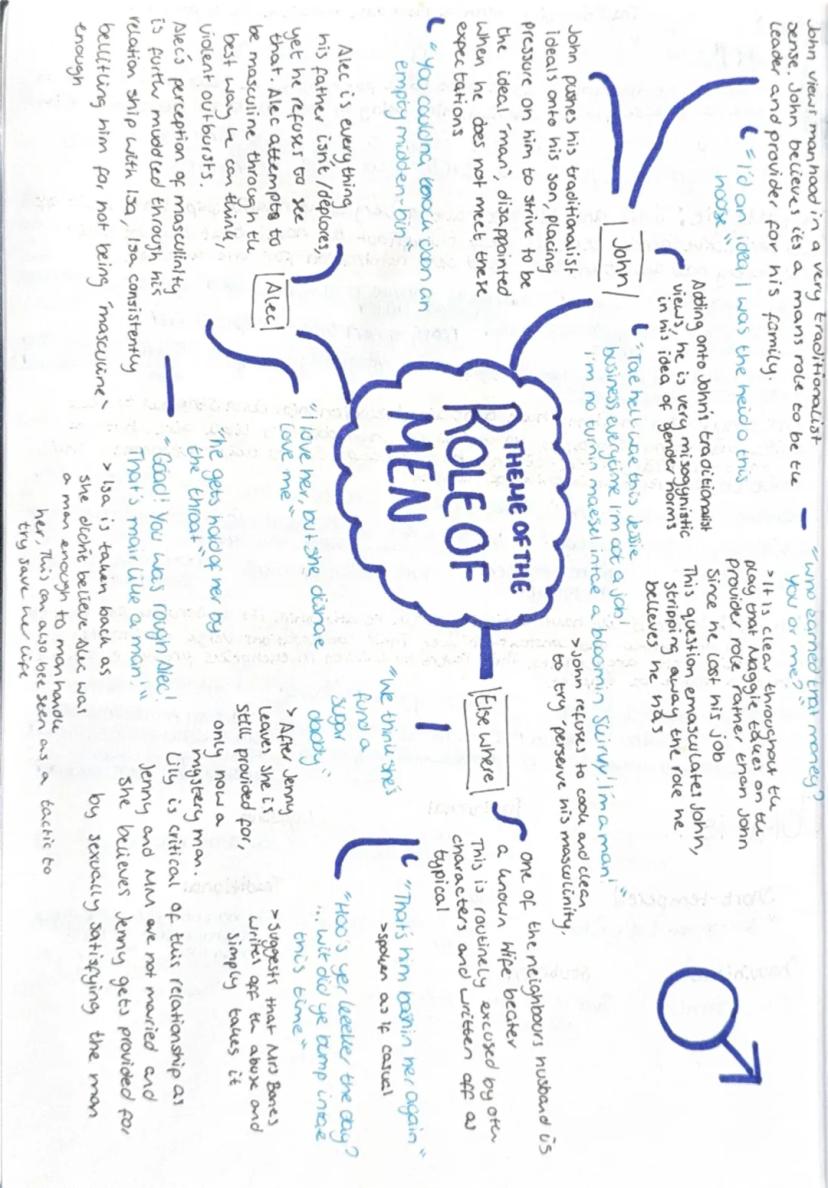 THEME OF THE
ROLE OF
MEN
John
John views manhood in a very traditionalist
sense. John believe its a mans role to be the
leader and provider for his family.
"I'd an idea I was the heid o this
hoose"
"Who earned that money?
You or me?"
> It is clear throughout the
play that Maggie takes on the
provider role rather than John
since he lost his job
This question emasculates John,
stripping away the role he
believes he has
Adding onto John's traditionalist
views, he is very misogynistic
in his idea of gender norms
"Tae hell wi this Jessie
business everytime I'm oot a job
I'm no turnin masel intae a bloomin skivvy! I'm a man!"
> John refuses to cook and clean,
to try preserve his masculinity.
John pushes his traditionalist
ideals onto his son, placing
pressure on him to strive to be
the ideal "man", disappointed
when he does not meet these
expectations
empty midden-bin
Alec
Alec is everything
his father isn't/deplores,
yet he refuse to see
that. Alec attempts to
be masculine through the
best way he can think,
violent outbursts.
Alec's perception of masculinity
is further muddled through his
relation ship with Isa, Isa consistently
belittling him for not being "masculine"
enough
I love her, but she disnae
love me"
"he gets hold of her by
the throat"
"Gead! You was rough Alec,
that's mair like a man!"
> Isa is taken back as
she didn't believe Alec was
a man enough to manhandle
her, This can also bee seen as a tactic to
try save her life
Else where
One of the neighbours husband is
a known wife beater
This is routinely excused by other
characters and written off as
typical
"That's him bashin her again"
> spoken as if casual
"Hoo's yer keeker the day?
... wit did ye bump intae
this time"
> Suggests that Mrs Bones
writes off the abuse and
simply takes it
"We think she's
fund a
sugar
daddy"
> After Jenny
leaves she is
still provided for,
only now a
mystery man.
Lily is critical of this relationship as
Jenny and MM are not married and
she believes Jenny gets provided for
by sexually satisfying the man